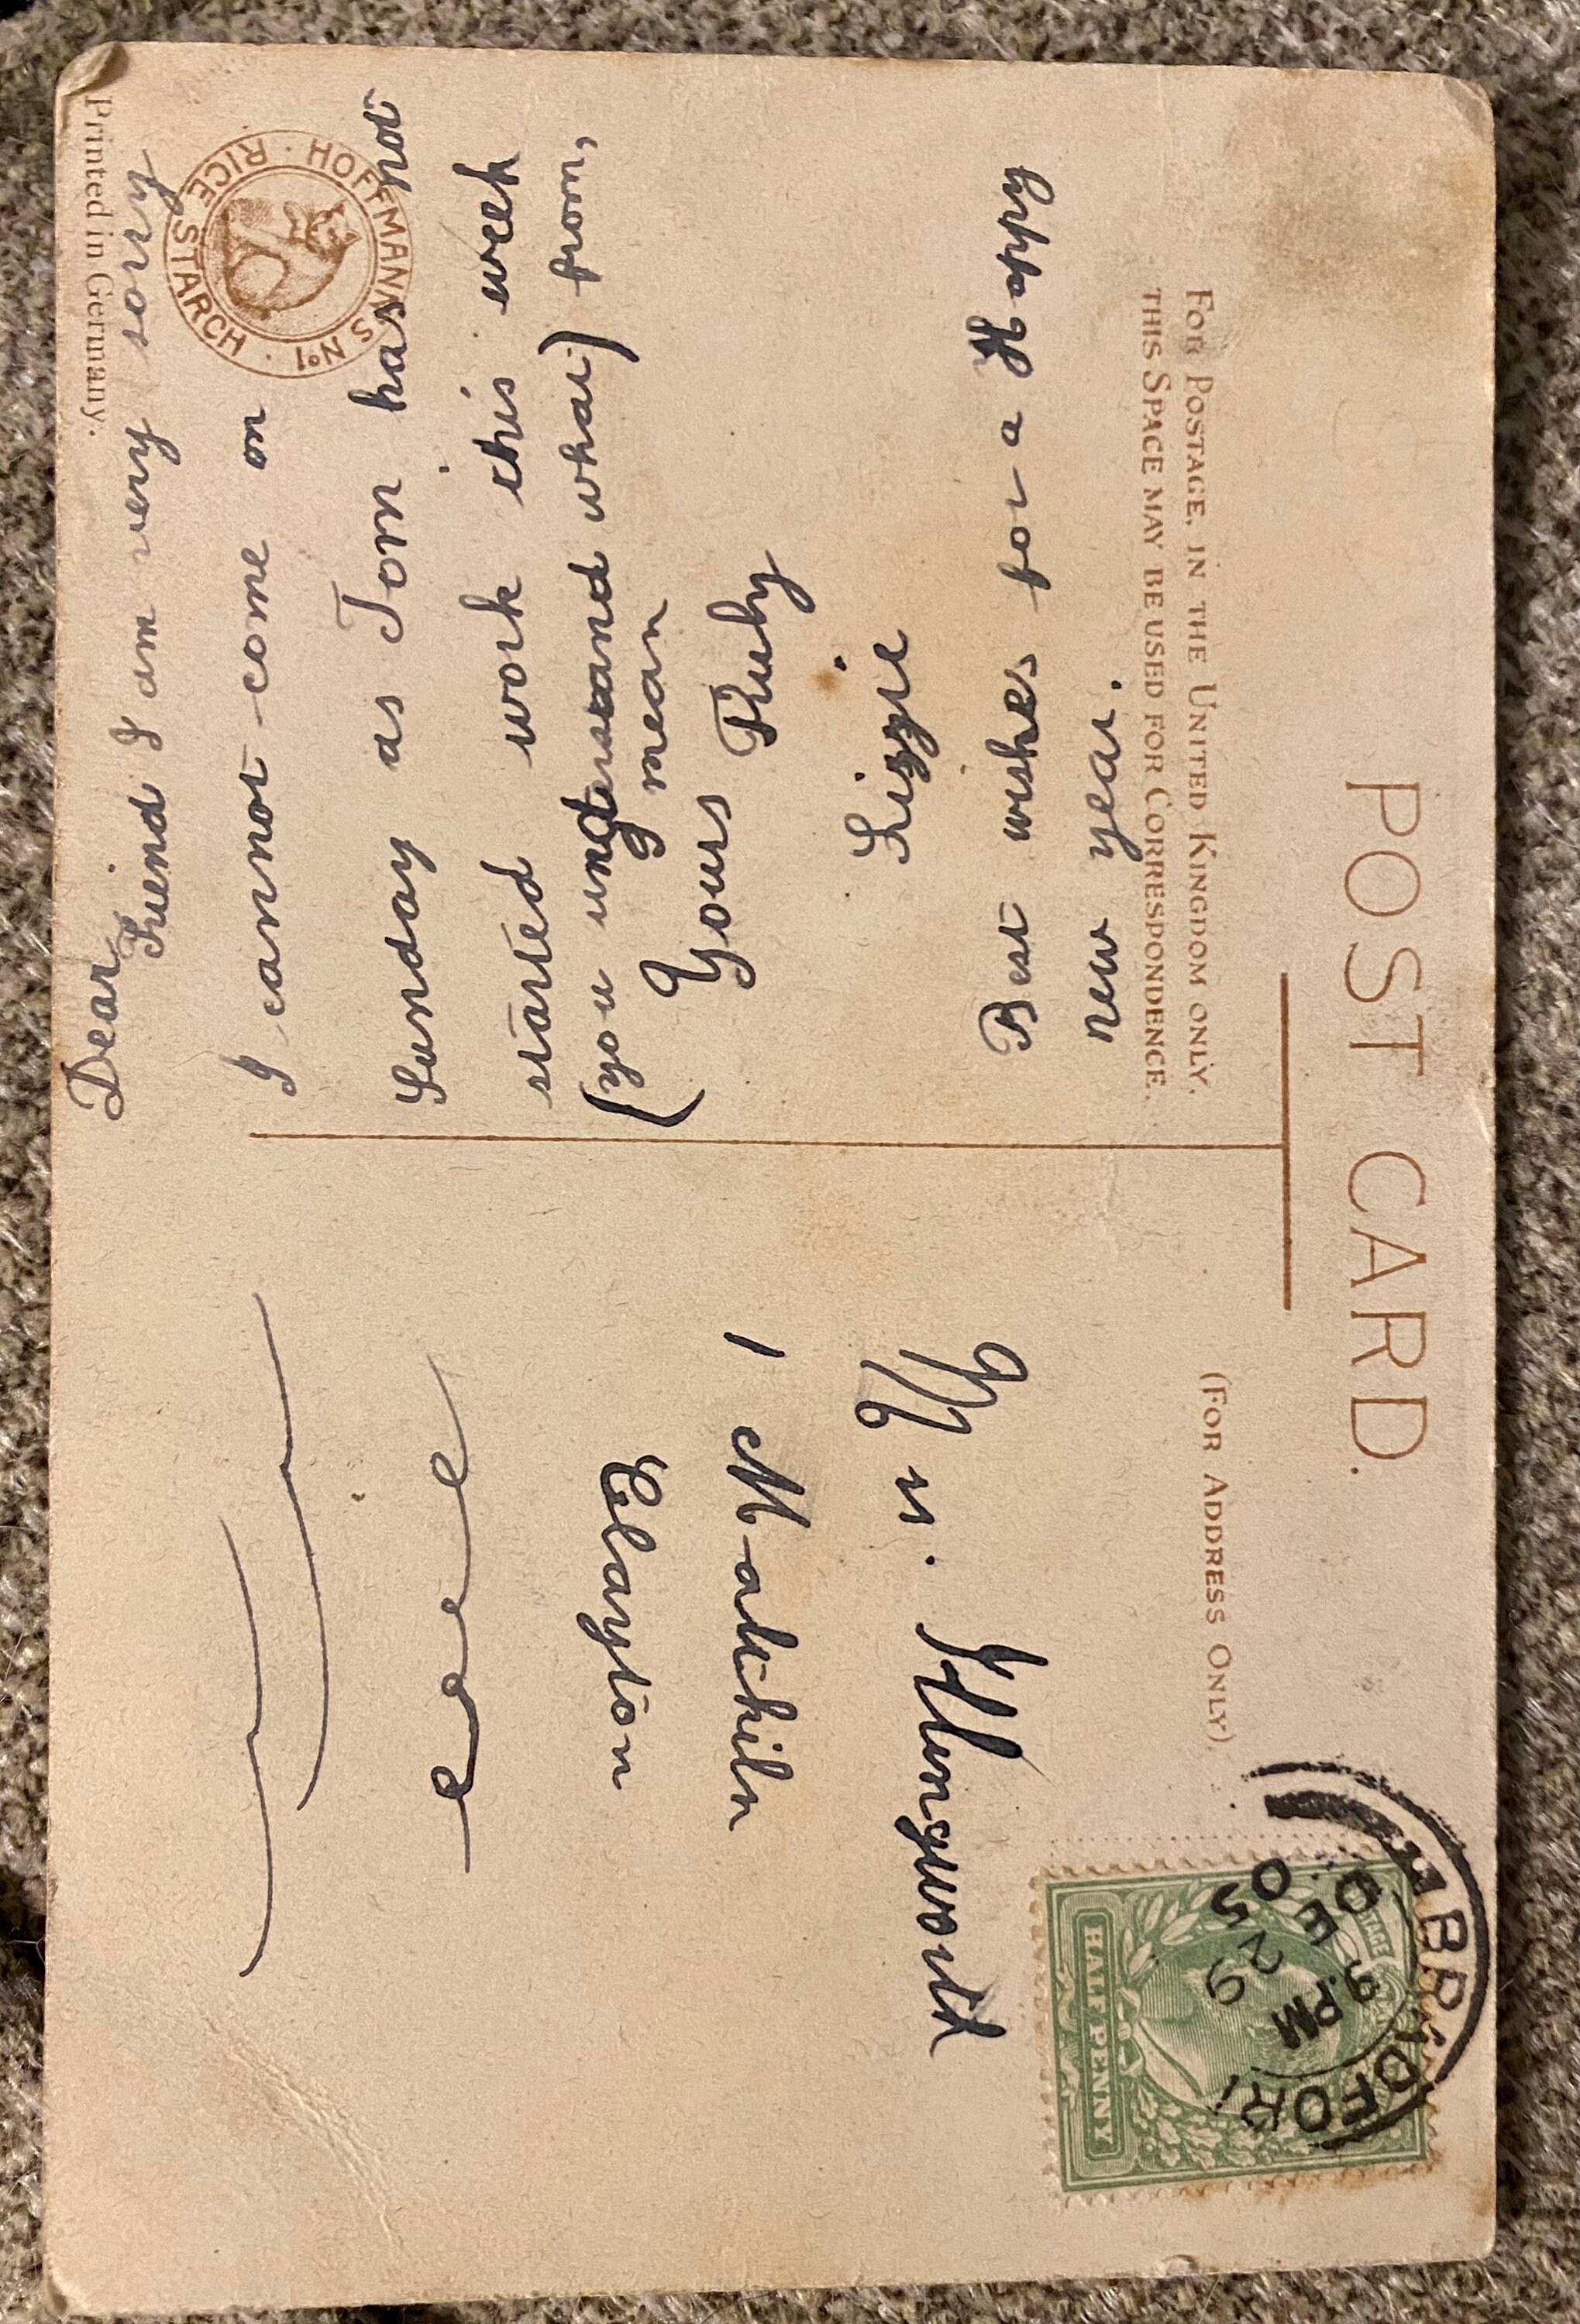 POST CARD.
FOR POSTAGE, IN THE UNITED KINGDOM ONLY,
THIS SPACE MAY BE USED FOR CORRESPONDENCE.
(FOR ADDRESS ONLY)
Dear
Friend I am very sorry
I cannot come on
Sunday as Tom has not
started work this week
(you understand what) from,
I mean
Yours Truly
Lizzie
Best wishes for a Happy
new year.
Mrs. Illingworth
1 Maltkiln
Clayton
HOFFMANN'S No1 · RICE STARCH ·
Printed in Germany.
BRADFORD
9 PM
DE 29
05
POSTAGE
HALF PENNY